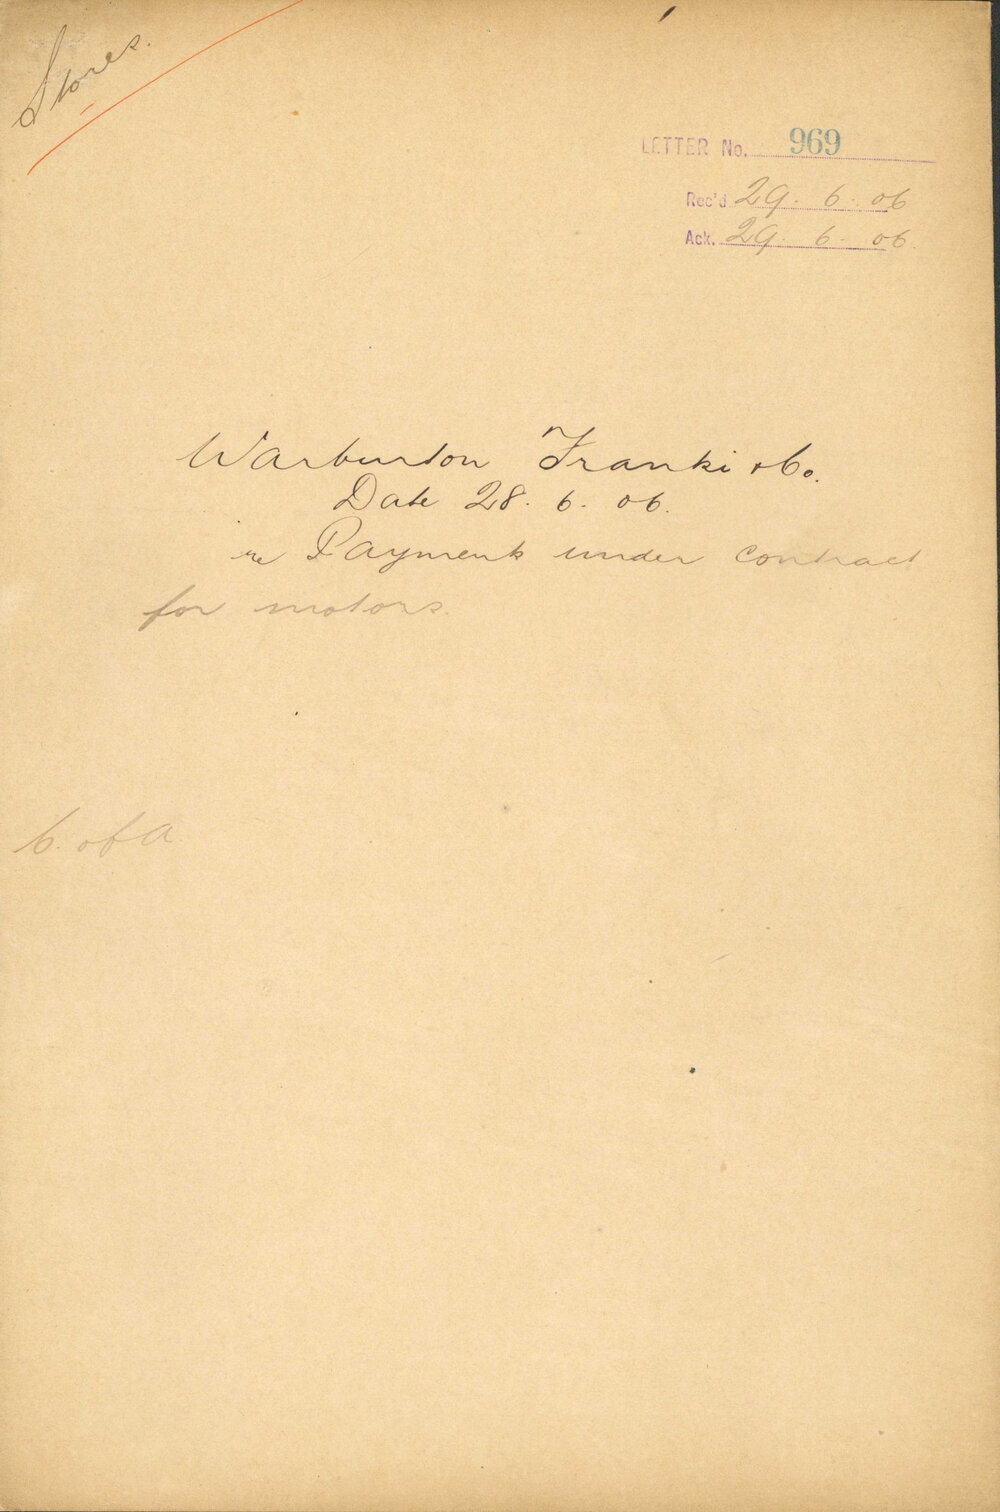 Stores.
LETTER No. 969
Rec'd 29. 6. 06
Ack. 29. 6. 06.
Warburton Franki & Co.
Date 28. 6. 06.
re Payment under contract
for motors.
C. of A